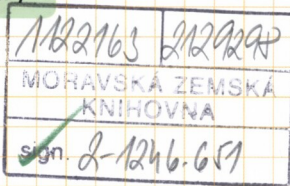 1122163 2129298
MORAVSKÁ ZEMSKÁ
KNIHOVNA
sign. 2-1246.651